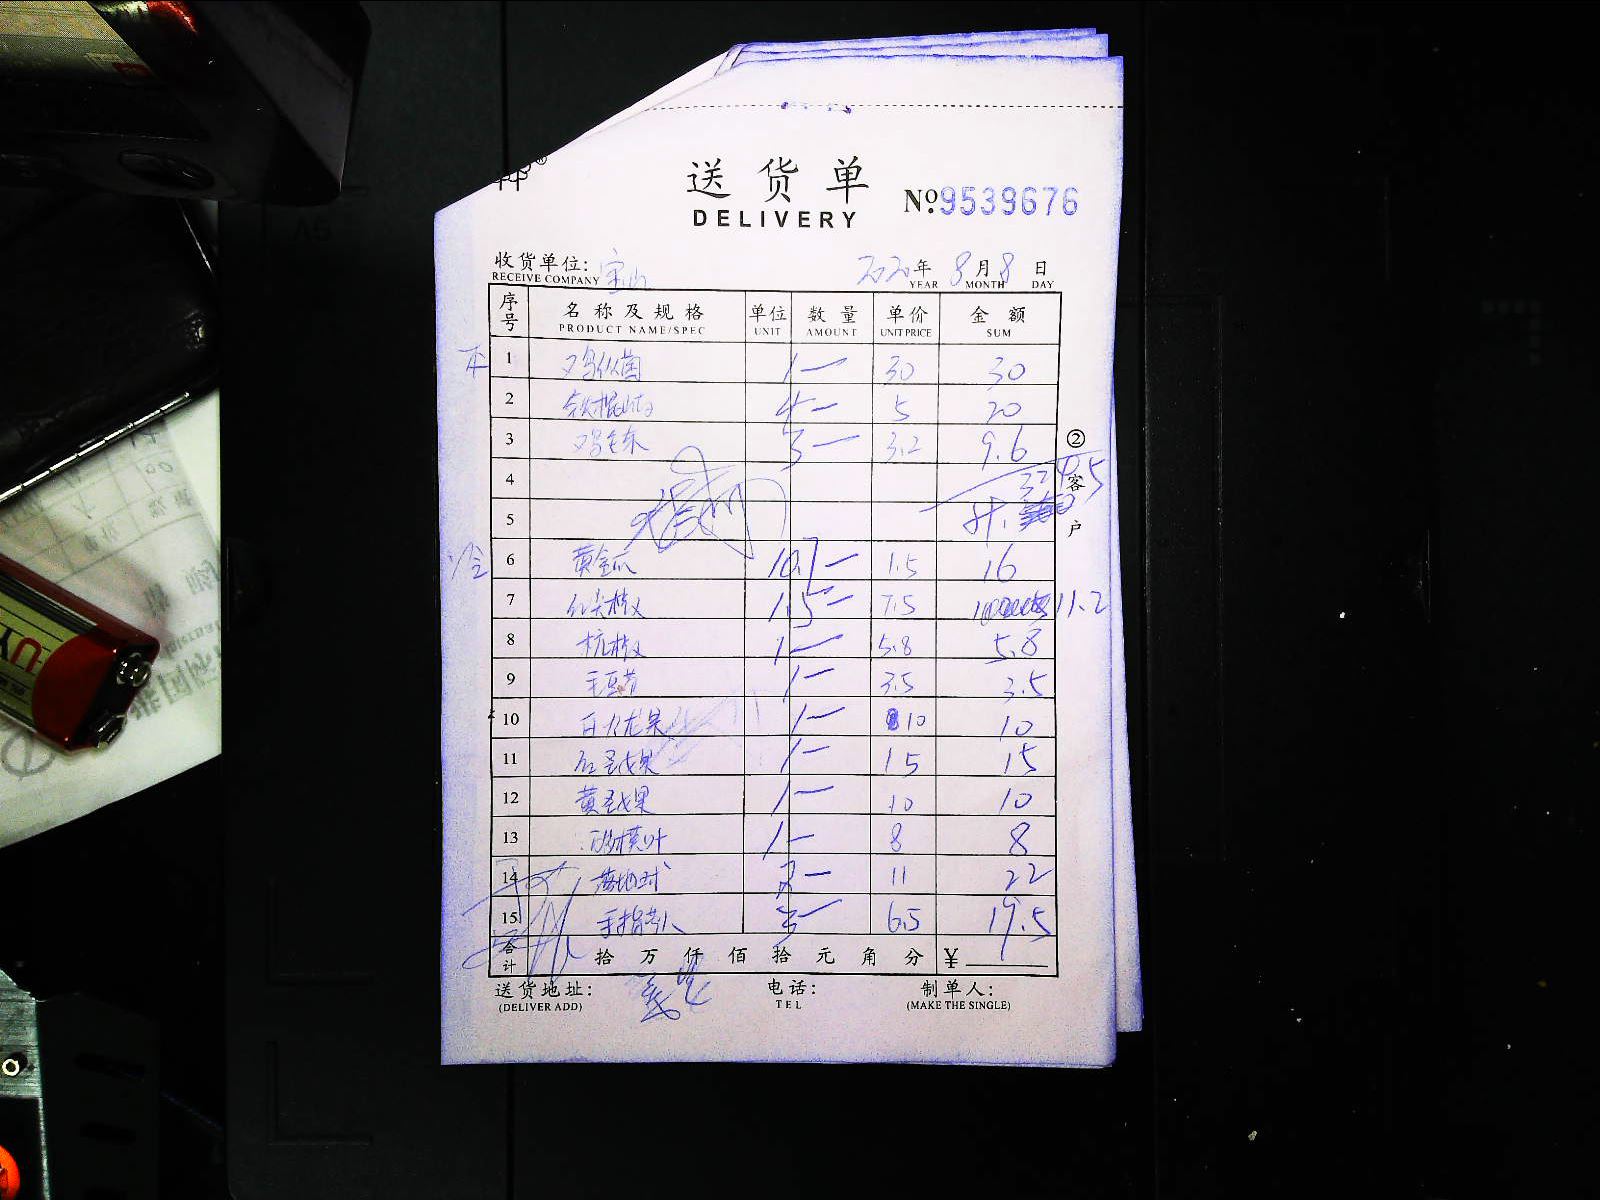 送货单
DELIVERY
No.9539676
收货单位: 宝山
RECEIVE COMPANY
2020年 8月8日
YEAR MONTH DAY
序号 名称及规格 单位 数量 单价 金额
PRODUCT NAME/SPEC UNIT AMOUNT UNIT PRICE SUM
1 鸡枞菌 1 30 30
2 铁棍山 4 5 20
3 鸡毛 3 3.2 9.6
②
4
客
5
户
6 黄金瓜 10.7 1.5 16
7 红尖椒 1.5 7.5 11.2
8 杭椒 1 5.8 5.8
9 毛豆 1 3.5 3.5
10 火龙果 1 10 10
11 红圣女果 1 15 15
12 黄圣女果 1 10 10
13 叶 1 8 8
14 2 11 22
15 手指 3 6.5 19.5
合计 拾 万 仟 佰 拾 元 角 分 ¥
送货地址: 电话: 制单人:
(DELIVER ADD) TEL (MAKE THE SINGLE)